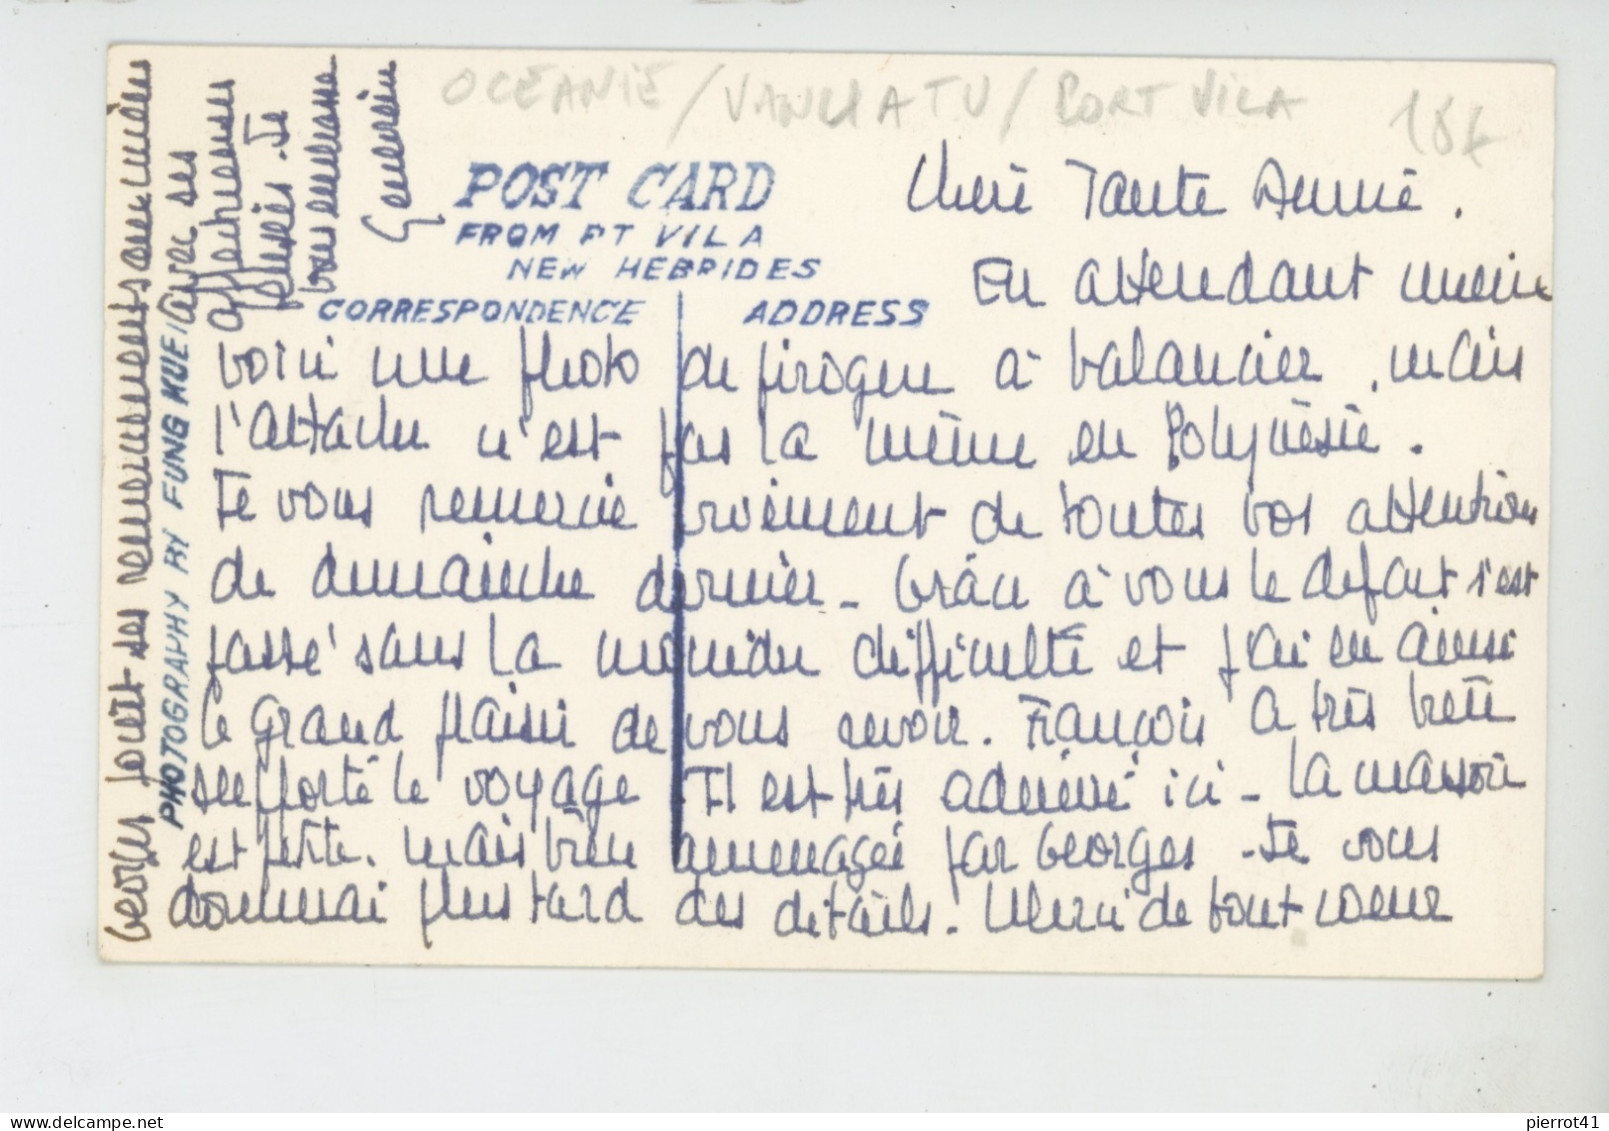 OCEANIE / VANUATU / PORT VILA
18€
POST CARD
FROM PT VILA
NEW HEBRIDES
CORRESPONDENCE
ADDRESS
PHOTOGRAPHY BY FUNG KUEI
Chère Tante Annie.
En attendant mieux
voici une photo de pirogue à balancier, mais
l'attache n'est pas la même en Polynésie.
Je vous remercie vivement de toutes vos attentions
de dimanche dernier - Grâce à vous le départ s'est
passé sans la moindre difficulté et j'ai eu ainsi
le grand plaisir de vous revoir. François a très bien
supporté le voyage Il est très admiré ici - La maison
est petite. mais bien aménagée par Georges - Je vous
donnerai plus tard des détails. Merci de tout coeur
Georges joint ses remerciements aux miens
avec ses
affectueuses
pensées. Je
vous embrasse
pierrot41